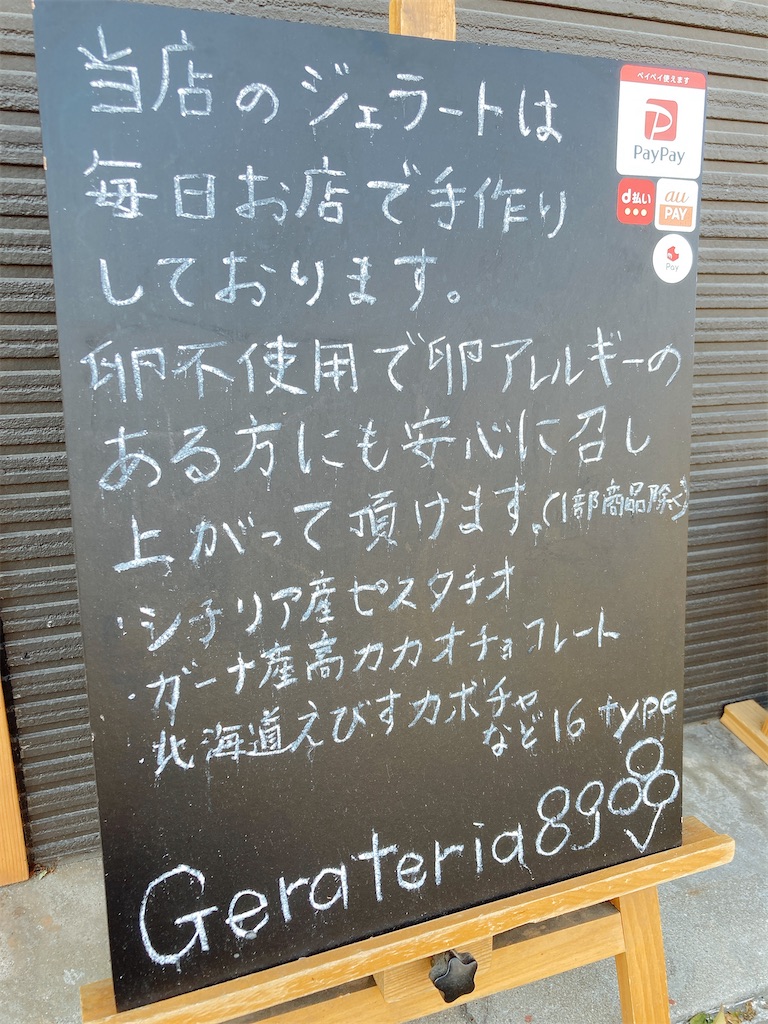 当店のジェラートは
毎日お店で手作り
しております。
卵不使用で卵アレルギーの
ある方にも安心に召し
上がって頂けます。(1部商品除く)
・シチリア産ピスタチオ
・ガーナ産高カカオチョコレート
・北海道えびすカボチャ
など16 type
Gerateria8908
ペイペイ使えます
PayPay
d払い
au PAY
Pay